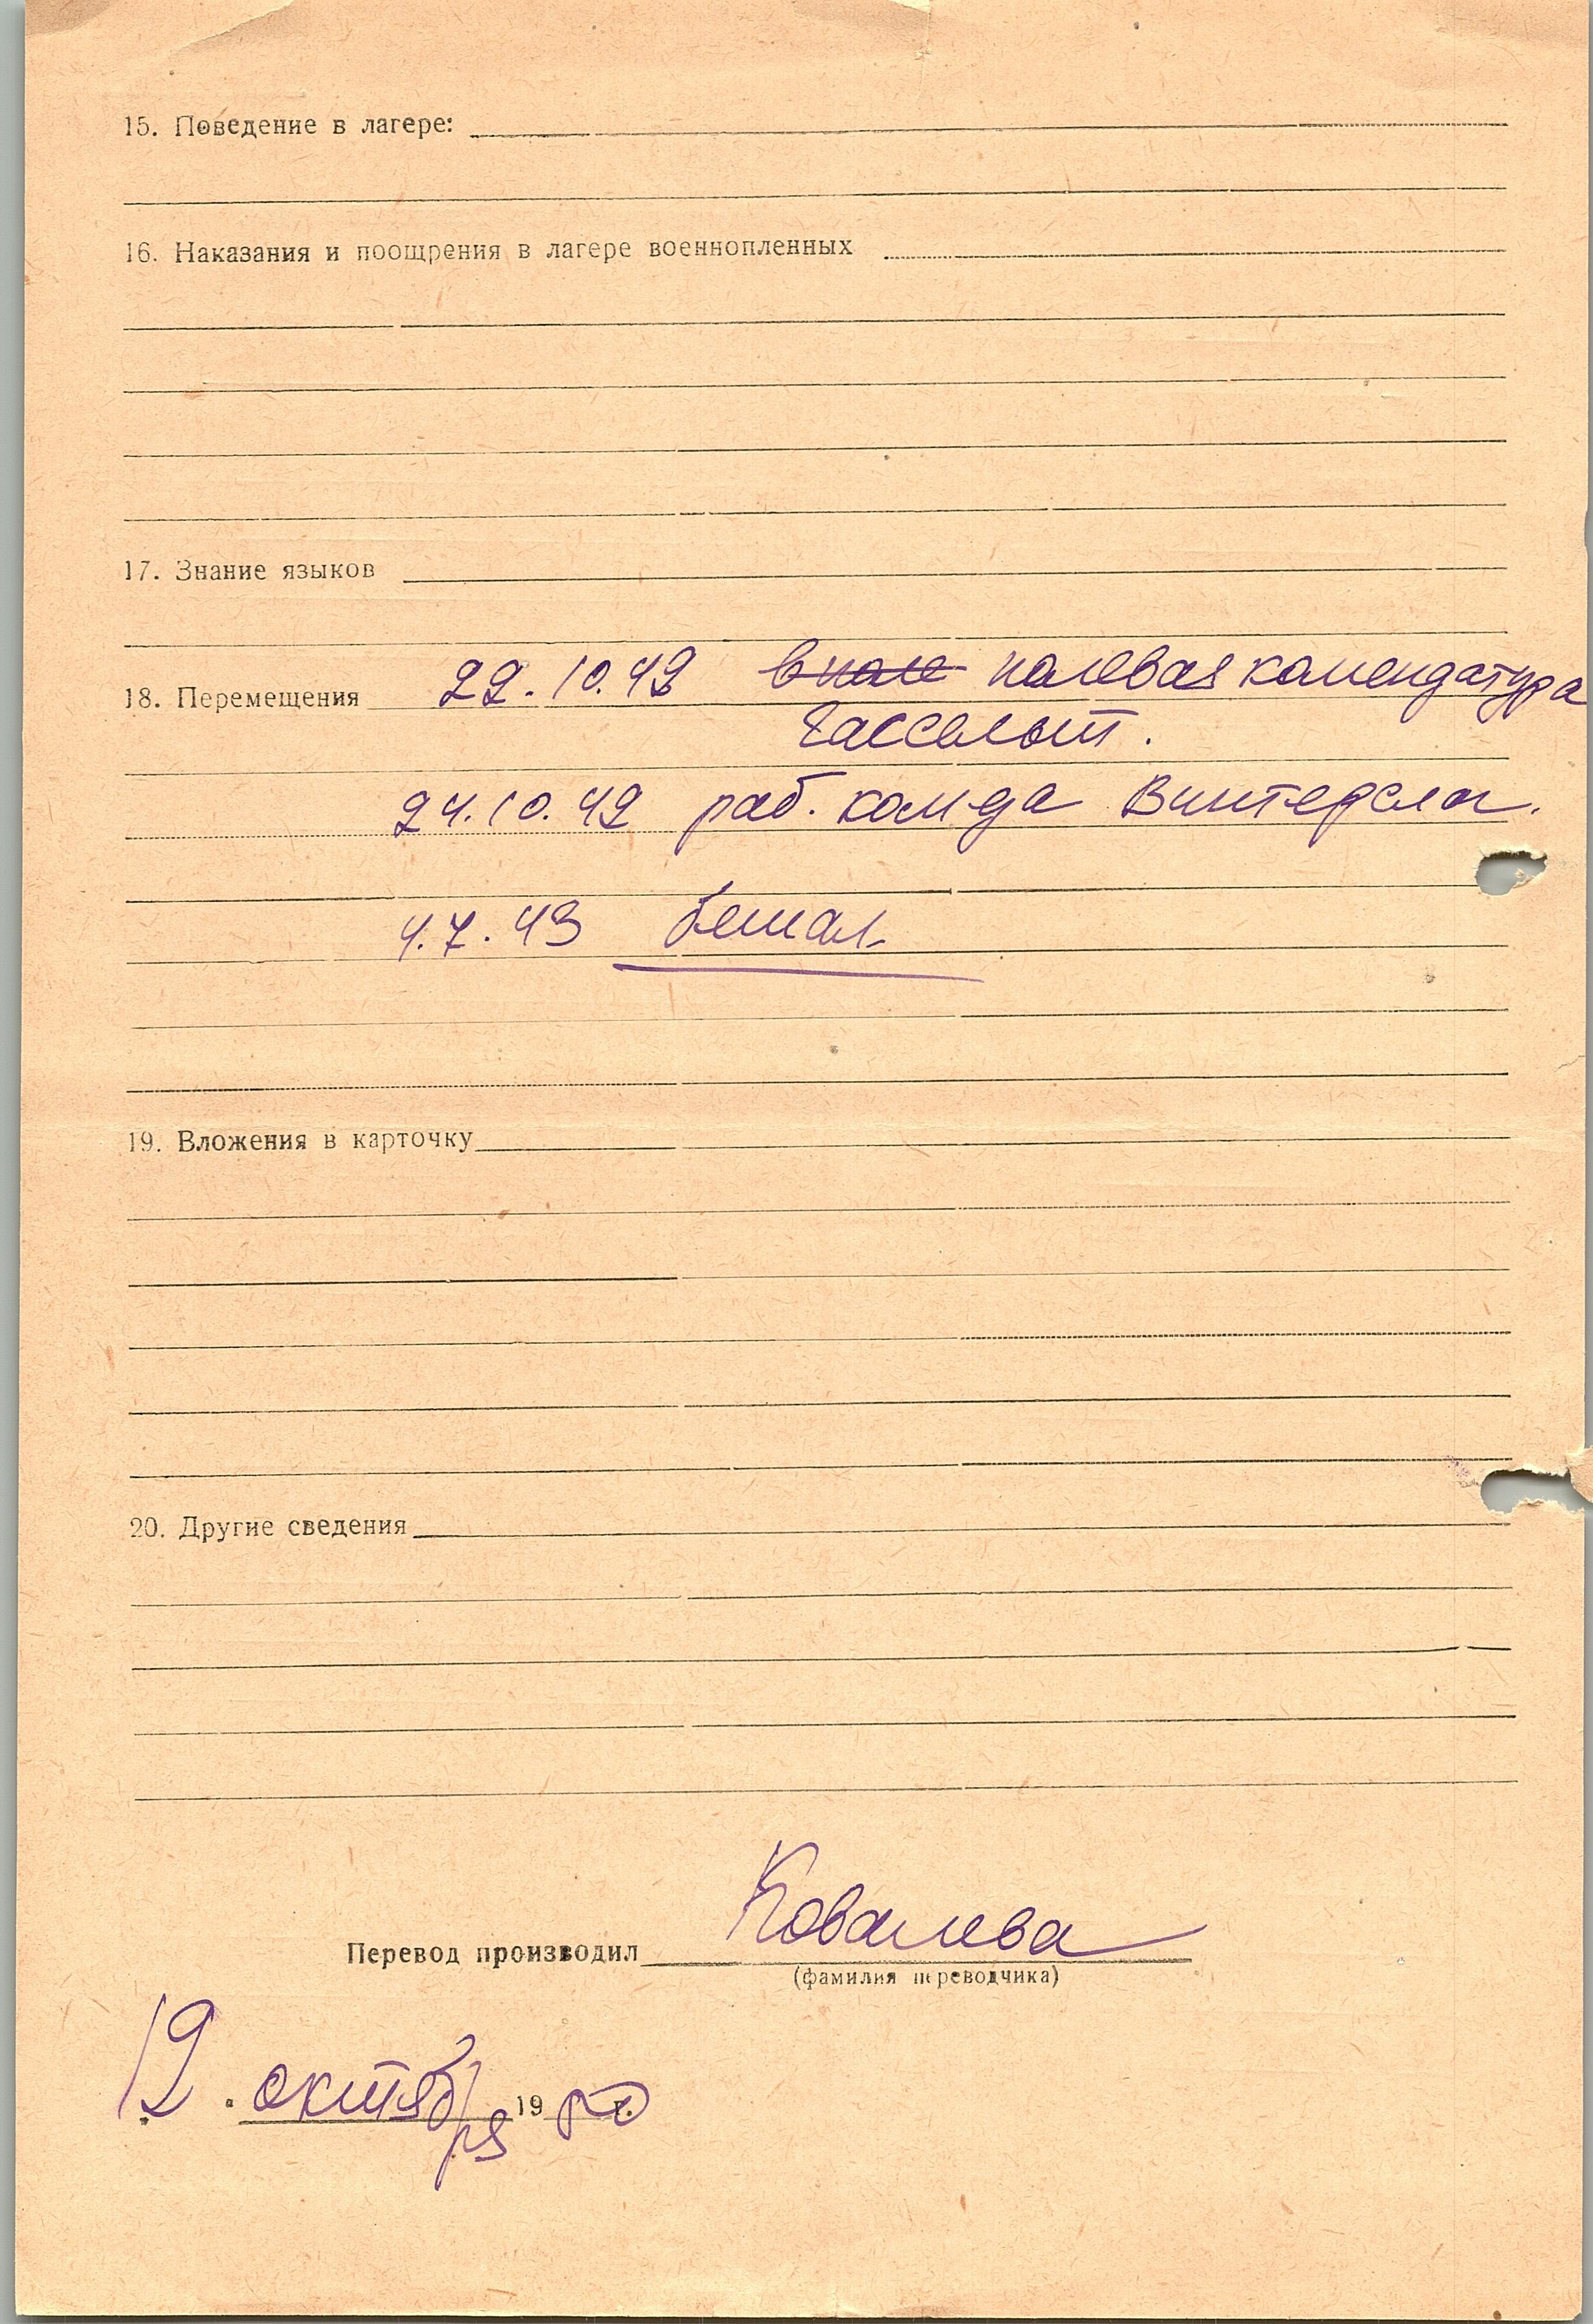 15. Поведение в лагере:
16. Наказания и поощрения в лагере военнопленных
17. Знание языков
18. Перемещения 22.10.42 полевая комендатура
Гассельт.
24.10.42 раб. ком да Винтерслаг.
4.7.43 бежал
19. Вложения в карточку
20. Другие сведения
Перевод производил Ковалева
(фамилия переводчика)
19 . октября 1950 г.